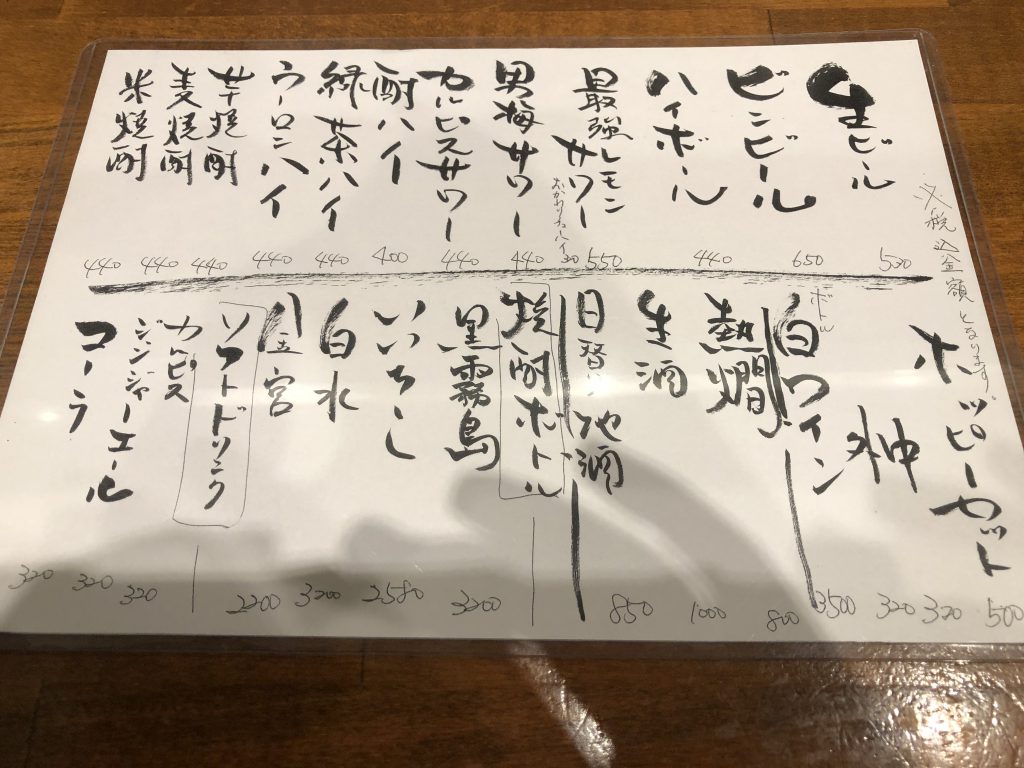 ※税込金額となります。
生ビール 520
ビンビール 650
ハイボール 440
最強レモンサワー 550
男梅サワー 440
カルピスサワー 440
酎ハイ 400
緑茶ハイ 440
ウーロンハイ 440
芋焼酎 440
麦焼酎 440
米焼酎 440
ホッピーセット 500
外 320
中 320
白ワイン ボトル 3500
熱燗 800
生酒 1000
日替り地酒 850
焼酎ボトル
黒霧島 3200
いいちこ 2580
白水 3200
宮 2200
ソフトドリンク
カルピス 320
ジンジャーエール 320
コーラ 320